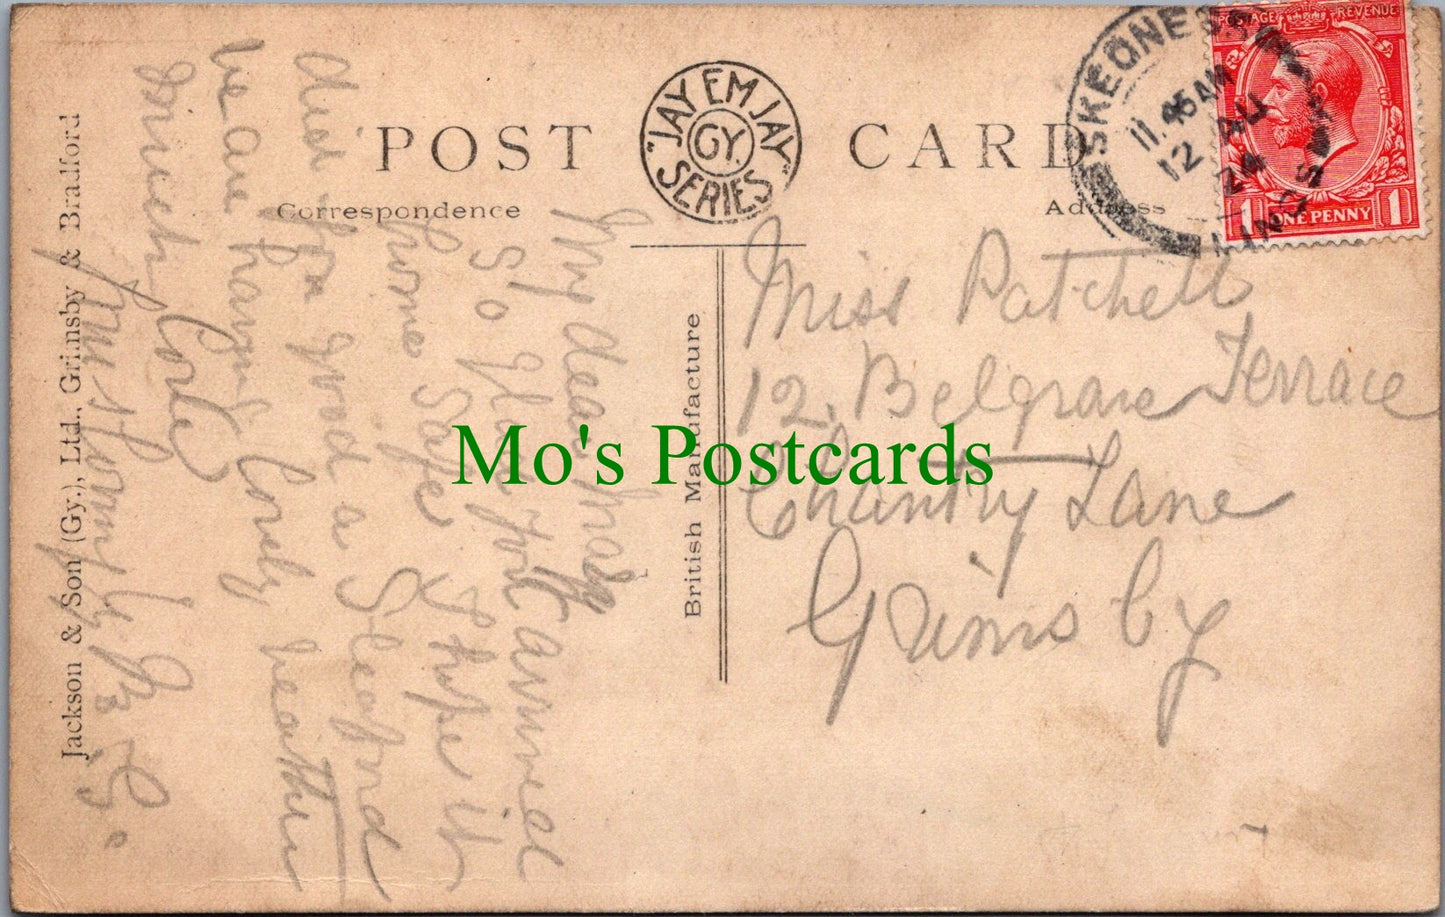 POST CARD
"JAY EM JAY"
GY.
SERIES
Correspondence
Address
SKEGNESS
11.45AM
12 AU
24
LINCS
POSTAGE REVENUE
1 ONE PENNY 1
My dear
So Glad you arrived
home safe I hope it
did you good at Sleaford
we are having lovely
Miss Patchett
12, Belgrave Terrace
Chantry Lane
Grimsby
British Manufacture
Jackson & Son (Gy.), Ltd., Grimsby & Bradford
Mo's Postcards